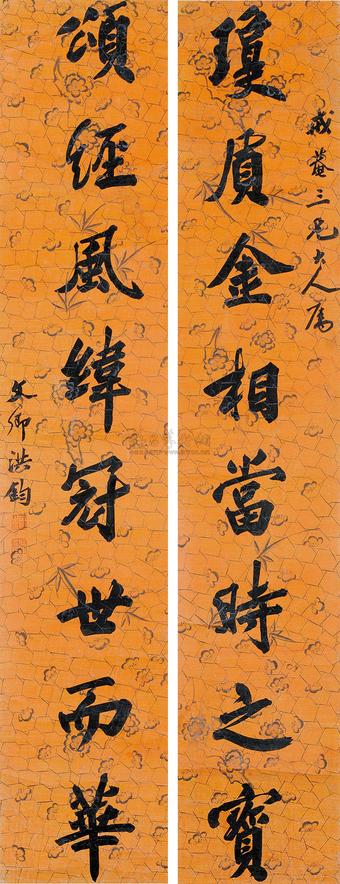 戒菴三兄大人属
瓊質金相當時之寶
頌經風緯冠世而華
文卿洪鈞